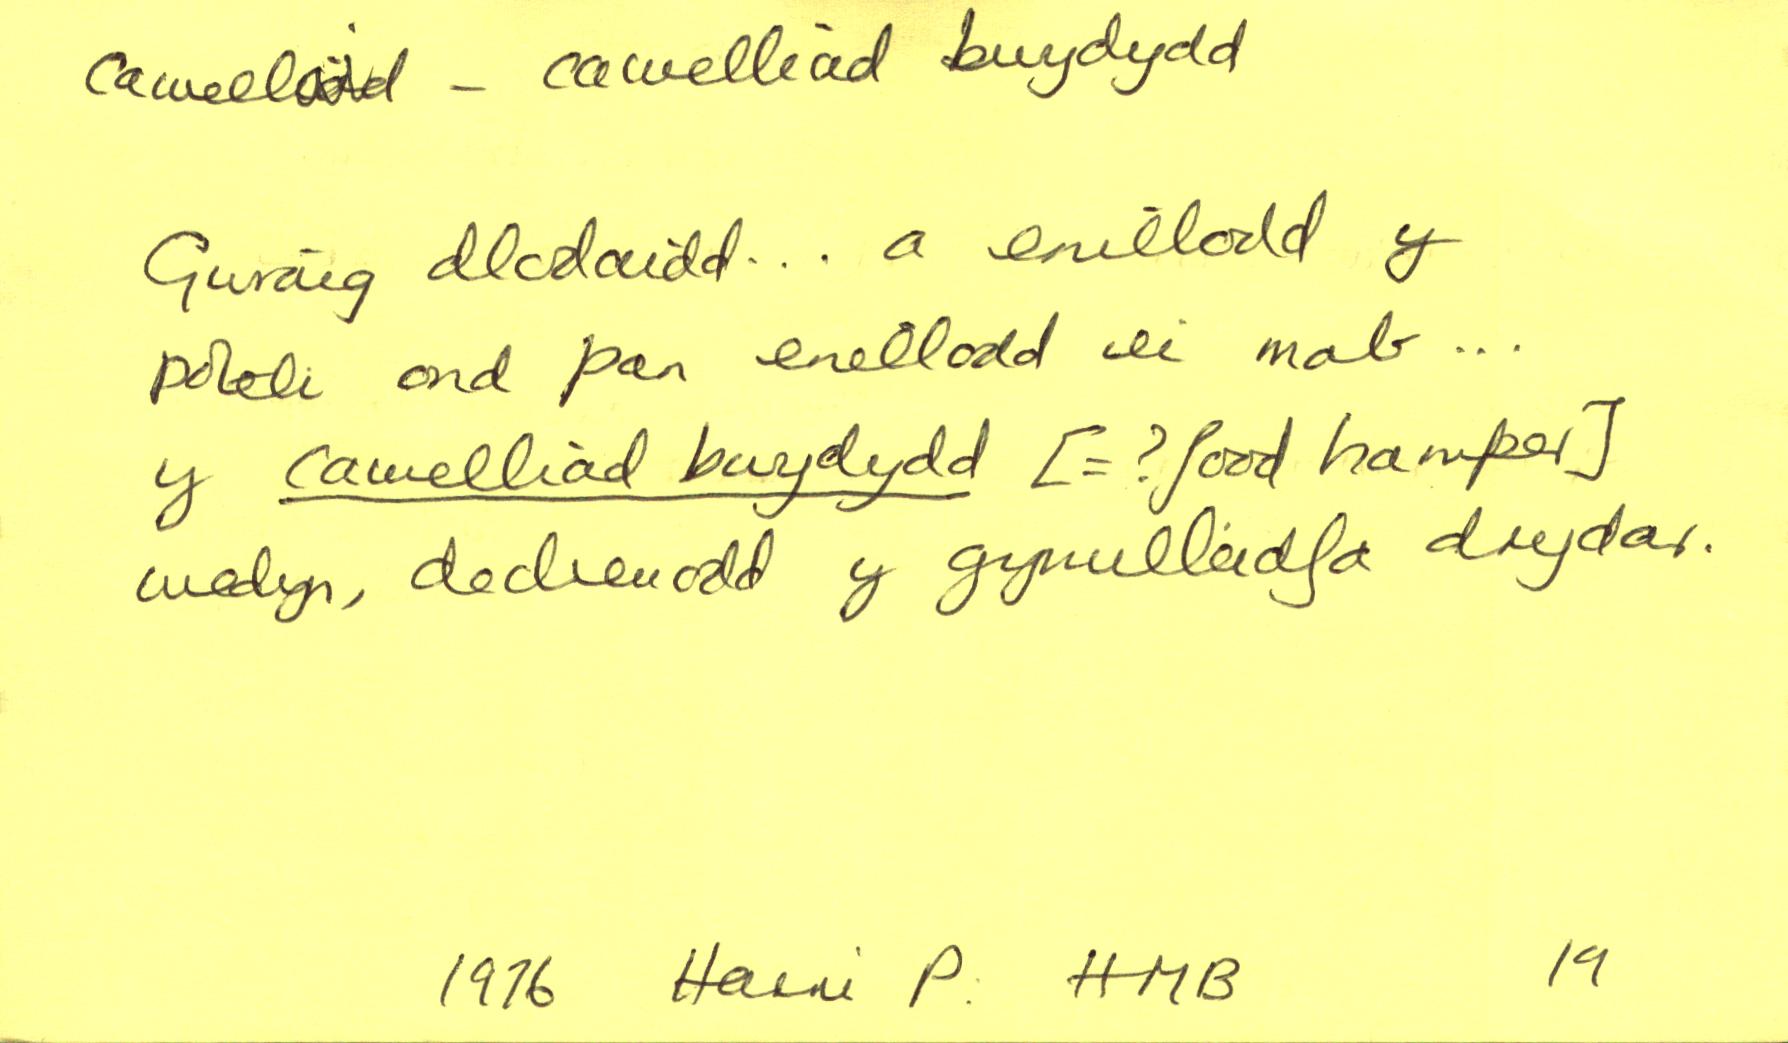 cawelliad – cawelliad bwydydd
Gwraig dlodaidd... a enillodd y
poteli ond pan enillodd ei mab ...
y cawelliad bwydydd [=?food hamper]
wedyn, dechreuodd y gynulleidfa drydar.
1976 Harri P. HMB 19